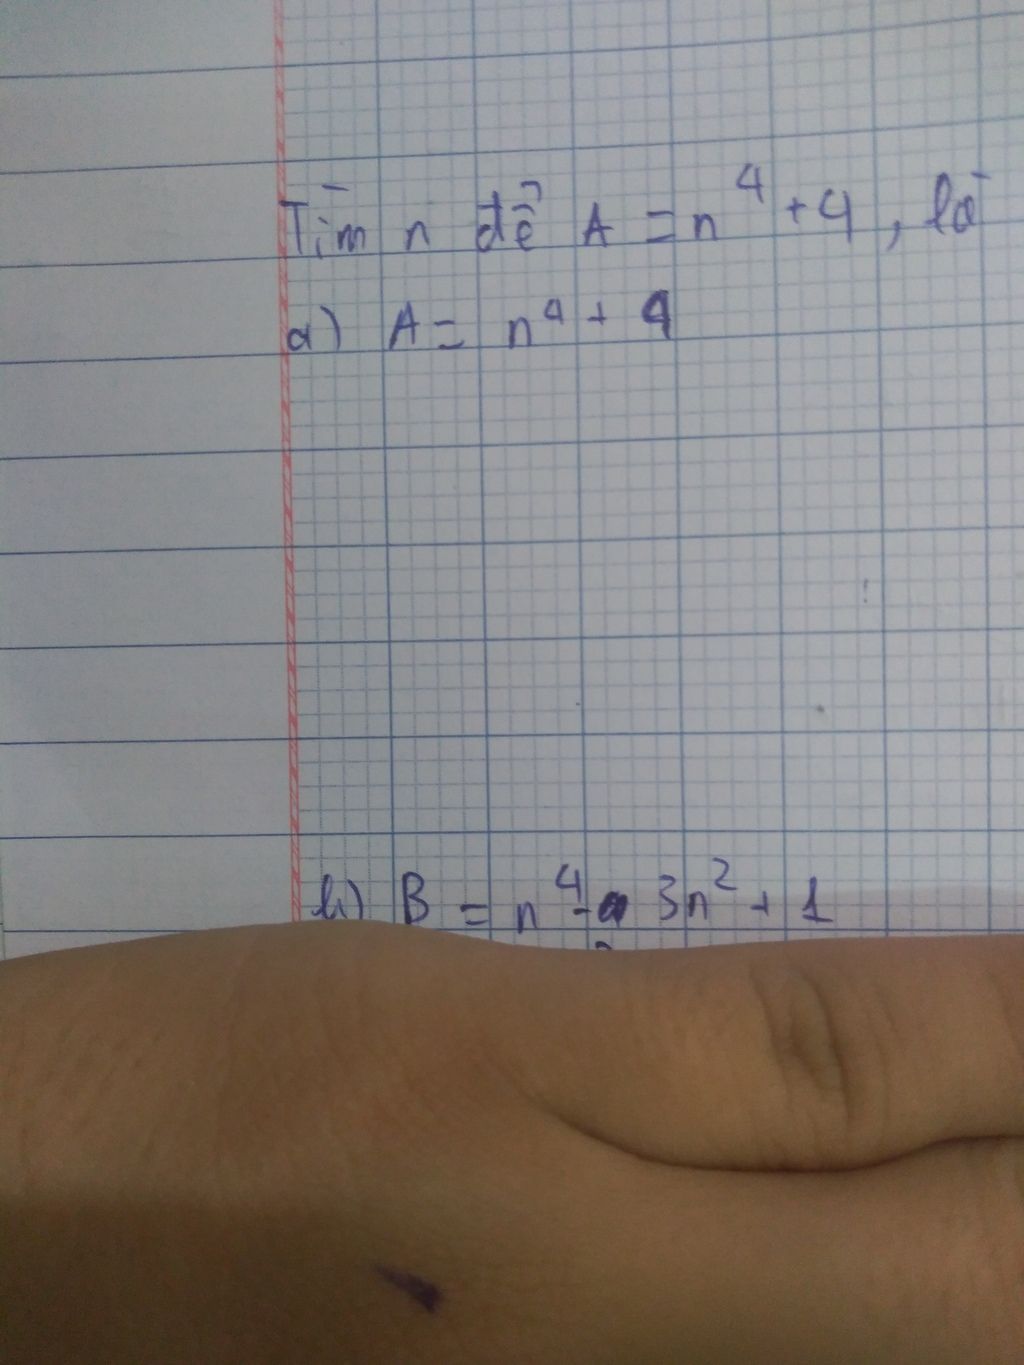 Tìm n để A = n⁴ + 4, là
a) A = n⁴ + 4
b) B = n⁴ - 3n² + 1